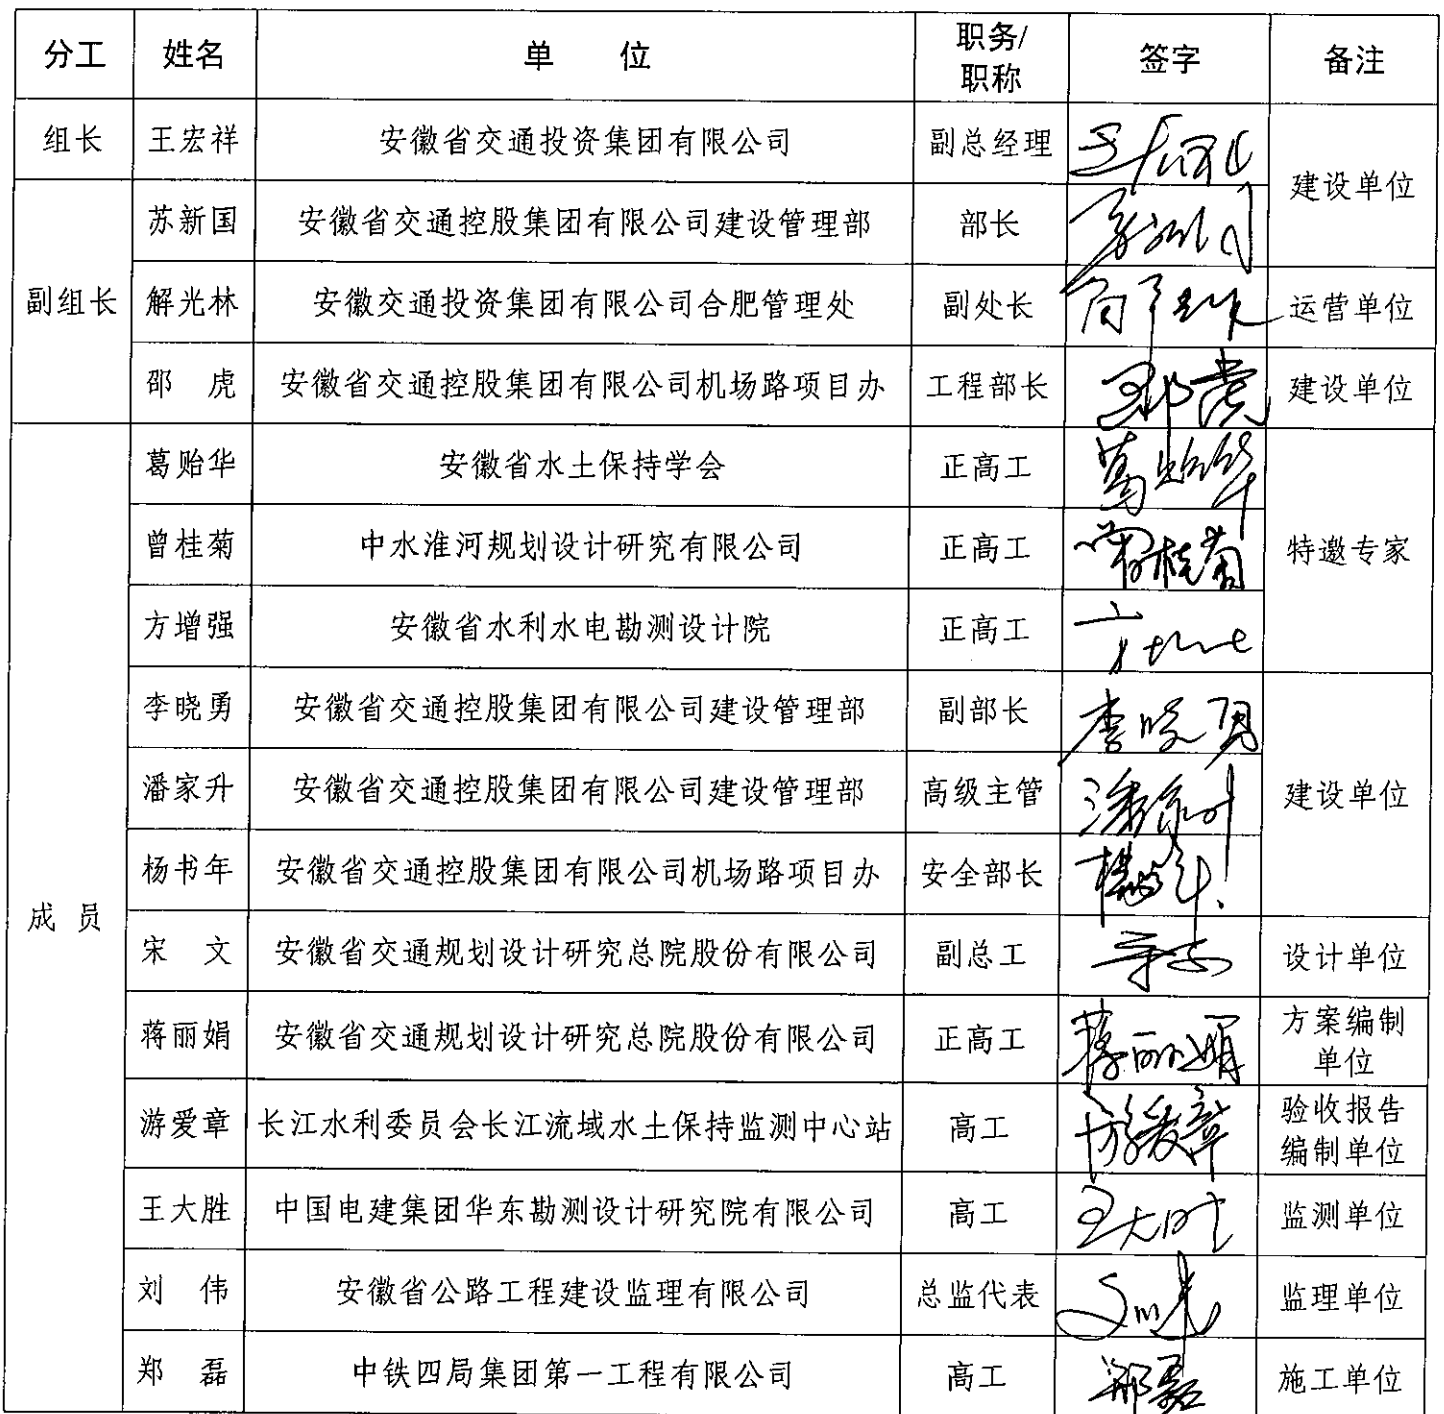 分工 姓名 单 位 职务/职称 签字 备注
组长 王宏祥 安徽省交通投资集团有限公司 副总经理 建设单位
副组长 苏新国 安徽省交通控股集团有限公司建设管理部 部长
解光林 安徽交通投资集团有限公司合肥管理处 副处长 运营单位
邵 虎 安徽省交通控股集团有限公司机场路项目办 工程部长 邵虎 建设单位
成 员 葛贻华 安徽省水土保持学会 正高工 葛贻华 特邀专家
曾桂菊 中水淮河规划设计研究有限公司 正高工 曾桂菊
方增强 安徽省水利水电勘测设计院 正高工
李晓勇 安徽省交通控股集团有限公司建设管理部 副部长 李晓勇 建设单位
潘家升 安徽省交通控股集团有限公司建设管理部 高级主管 潘家升
杨书年 安徽省交通控股集团有限公司机场路项目办 安全部长 杨书年
宋 文 安徽省交通规划设计研究总院股份有限公司 副总工 设计单位
蒋丽娟 安徽省交通规划设计研究总院股份有限公司 正高工 蒋丽娟 方案编制单位
游爱章 长江水利委员会长江流域水土保持监测中心站 高工 游爱章 验收报告编制单位
王大胜 中国电建集团华东勘测设计研究院有限公司 高工 王大胜 监测单位
刘 伟 安徽省公路工程建设监理有限公司 总监代表 监理单位
郑 磊 中铁四局集团第一工程有限公司 高工 郑磊 施工单位